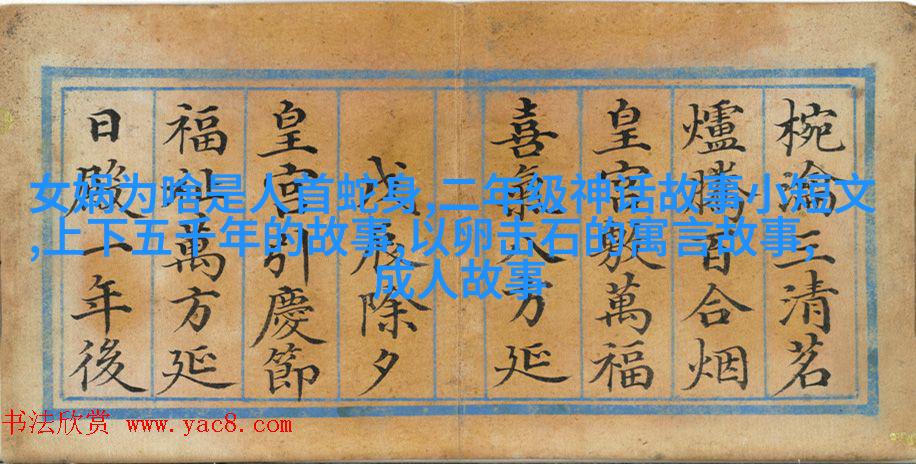 椀瀹三清茗
爐騰百合烟
皇宮萬福
喜氣八方延
除夕
皇宮引慶節
福萬方延
日一年後
女娲为啥是人首蛇身,二年级神话故事小短文
,上下五千年的故事,以卵击石的寓言故事,
成人故事
书法欣赏 www.yac8.com